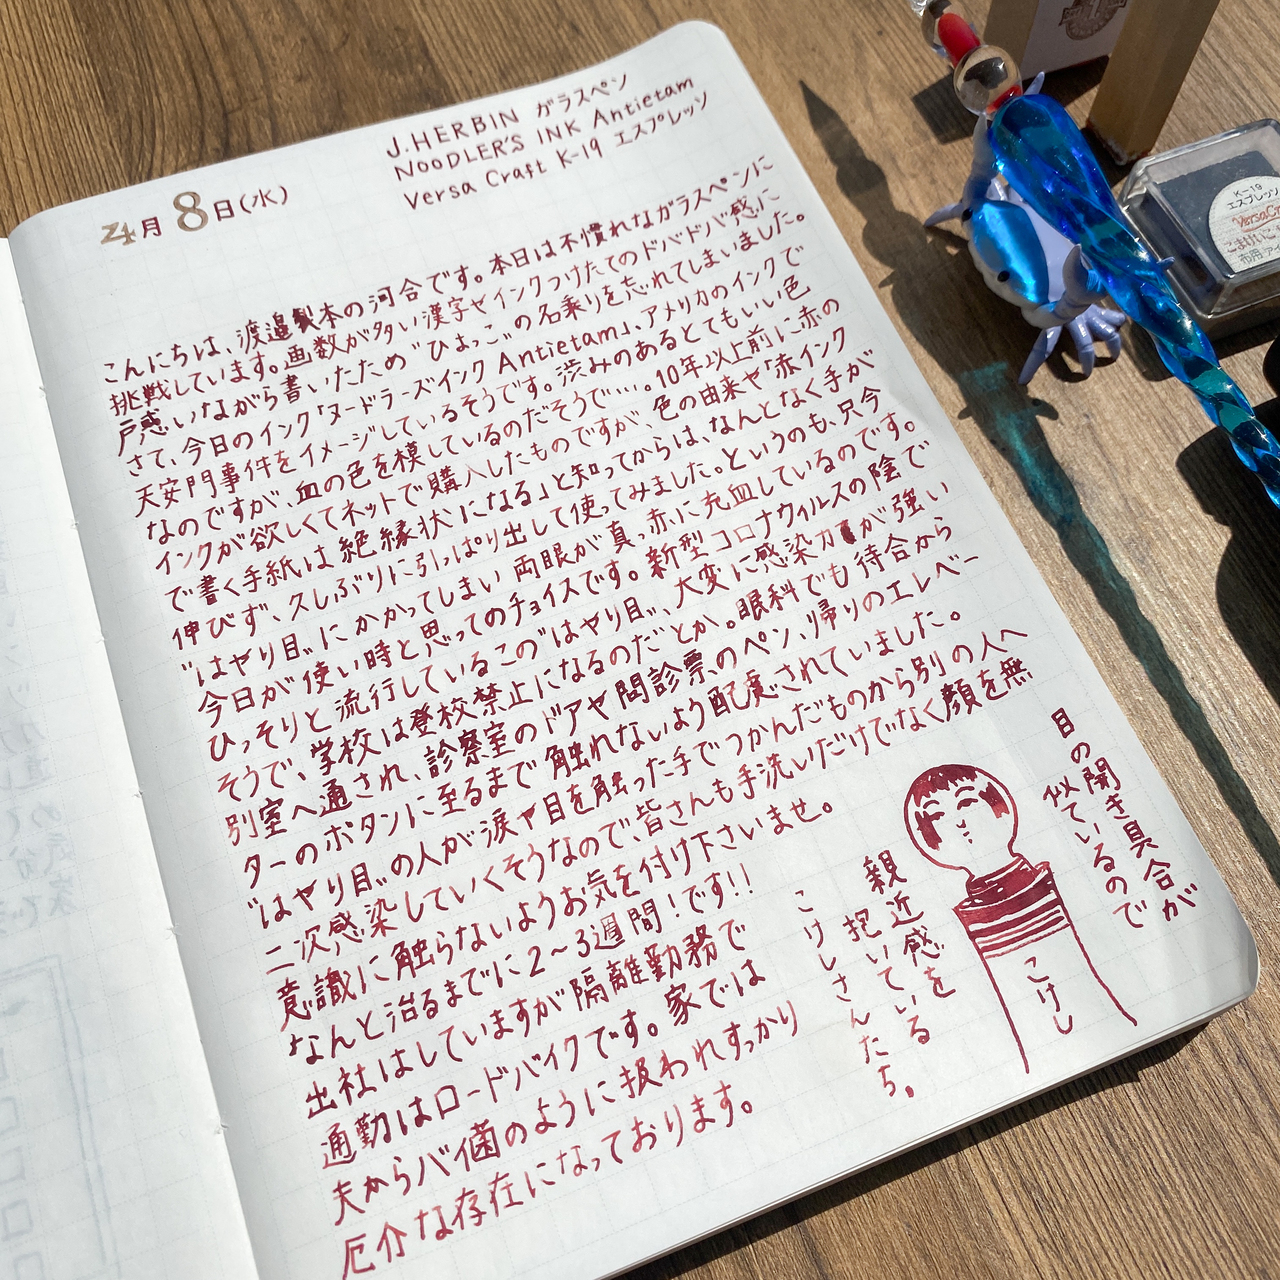 J.HERBIN ガラスペン
NOODLER'S INK Antietam
Versa Craft K-19 エスプレッソ
4月8日(水)
こんにちは、渡邉製本の河合です。本日は不慣れなガラスペンに
挑戦しています。画数が多い漢字やインクつけたてのドバドバ感に
戸惑いながら書いたため"ひよっこ"の名乗りを忘れてしまいました。
さて、今日のインク「ヌードラーズインク Antietam」、アメリカのインクで
天安門事件をイメージしているそうです。渋みのあるとてもいい色
なのですが、血の色を模しているのだそうで…。10年以上前に赤の
インクが欲しくてネットで購入したものですが、色の由来や「赤インク
で書く手紙は絶縁状になる」と知ってからは、なんとなく手が
伸びず、久しぶりに引っぱり出して使ってみました。というのも、只今
"はやり目"にかかってしまい両眼が真っ赤に充血しているのです。
今日が使い時と思ってのチョイスです。新型コロナウィルスの陰で
ひっそりと流行しているこの"はやり目"、大変に感染力が強い
そうで、学校は登校禁止になるのだとか。眼科でも待合から
別室へ通され、診察室のドアや問診票のペン、帰りのエレベー
ターのボタンに至るまで触れないよう配慮されていました。
"はやり目"の人が涙や目を触った手でつかんだものから別の人へ
二次感染していくそうなので、皆さんも手洗いだけでなく顔を無
意識に触らないようお気を付け下さいませ。
なんと治るまでに2〜3週間!です!!
出社はしていますが隔離勤務で
通勤はロードバイクです。家では
夫からバイ菌のように扱われすっかり
厄介な存在になっております。
目の開き具合が
似ているので
親近感を
抱いている
こけしさんたち。
こけし
K-19
エスプレッソ
VersaCra
こまけいこ
布用